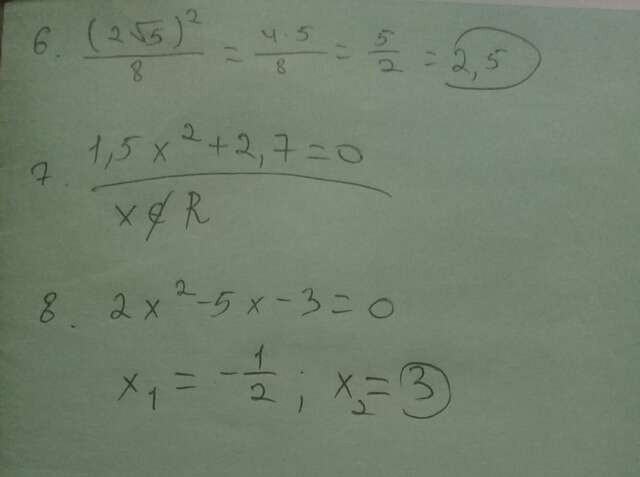 6. (2√5)²/8 = 4·5/8 = 5/2 = 2,5
7. 1,5x²+2,7=0
x∉R
8. 2x²-5x-3=0
x₁ = -1/2; x₂=3